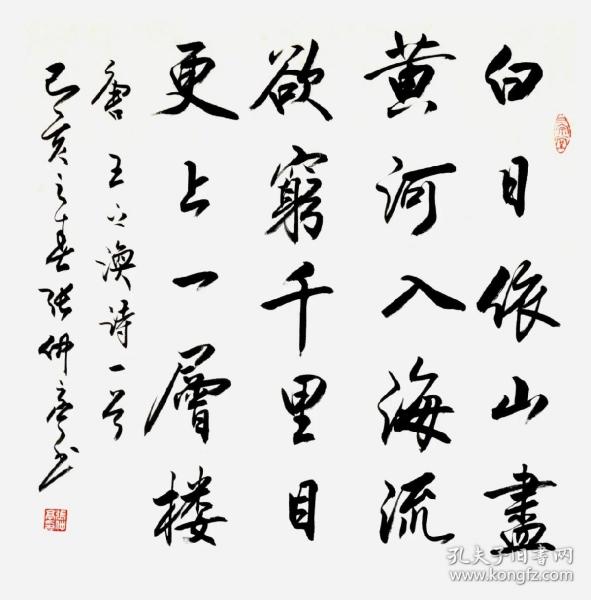 白日依山盡
黄河入海流
欲窮千里目
更上一層楼
唐王之渙诗一首
己亥之春张仲亭书
孔夫子旧书网
www.kongfz.com